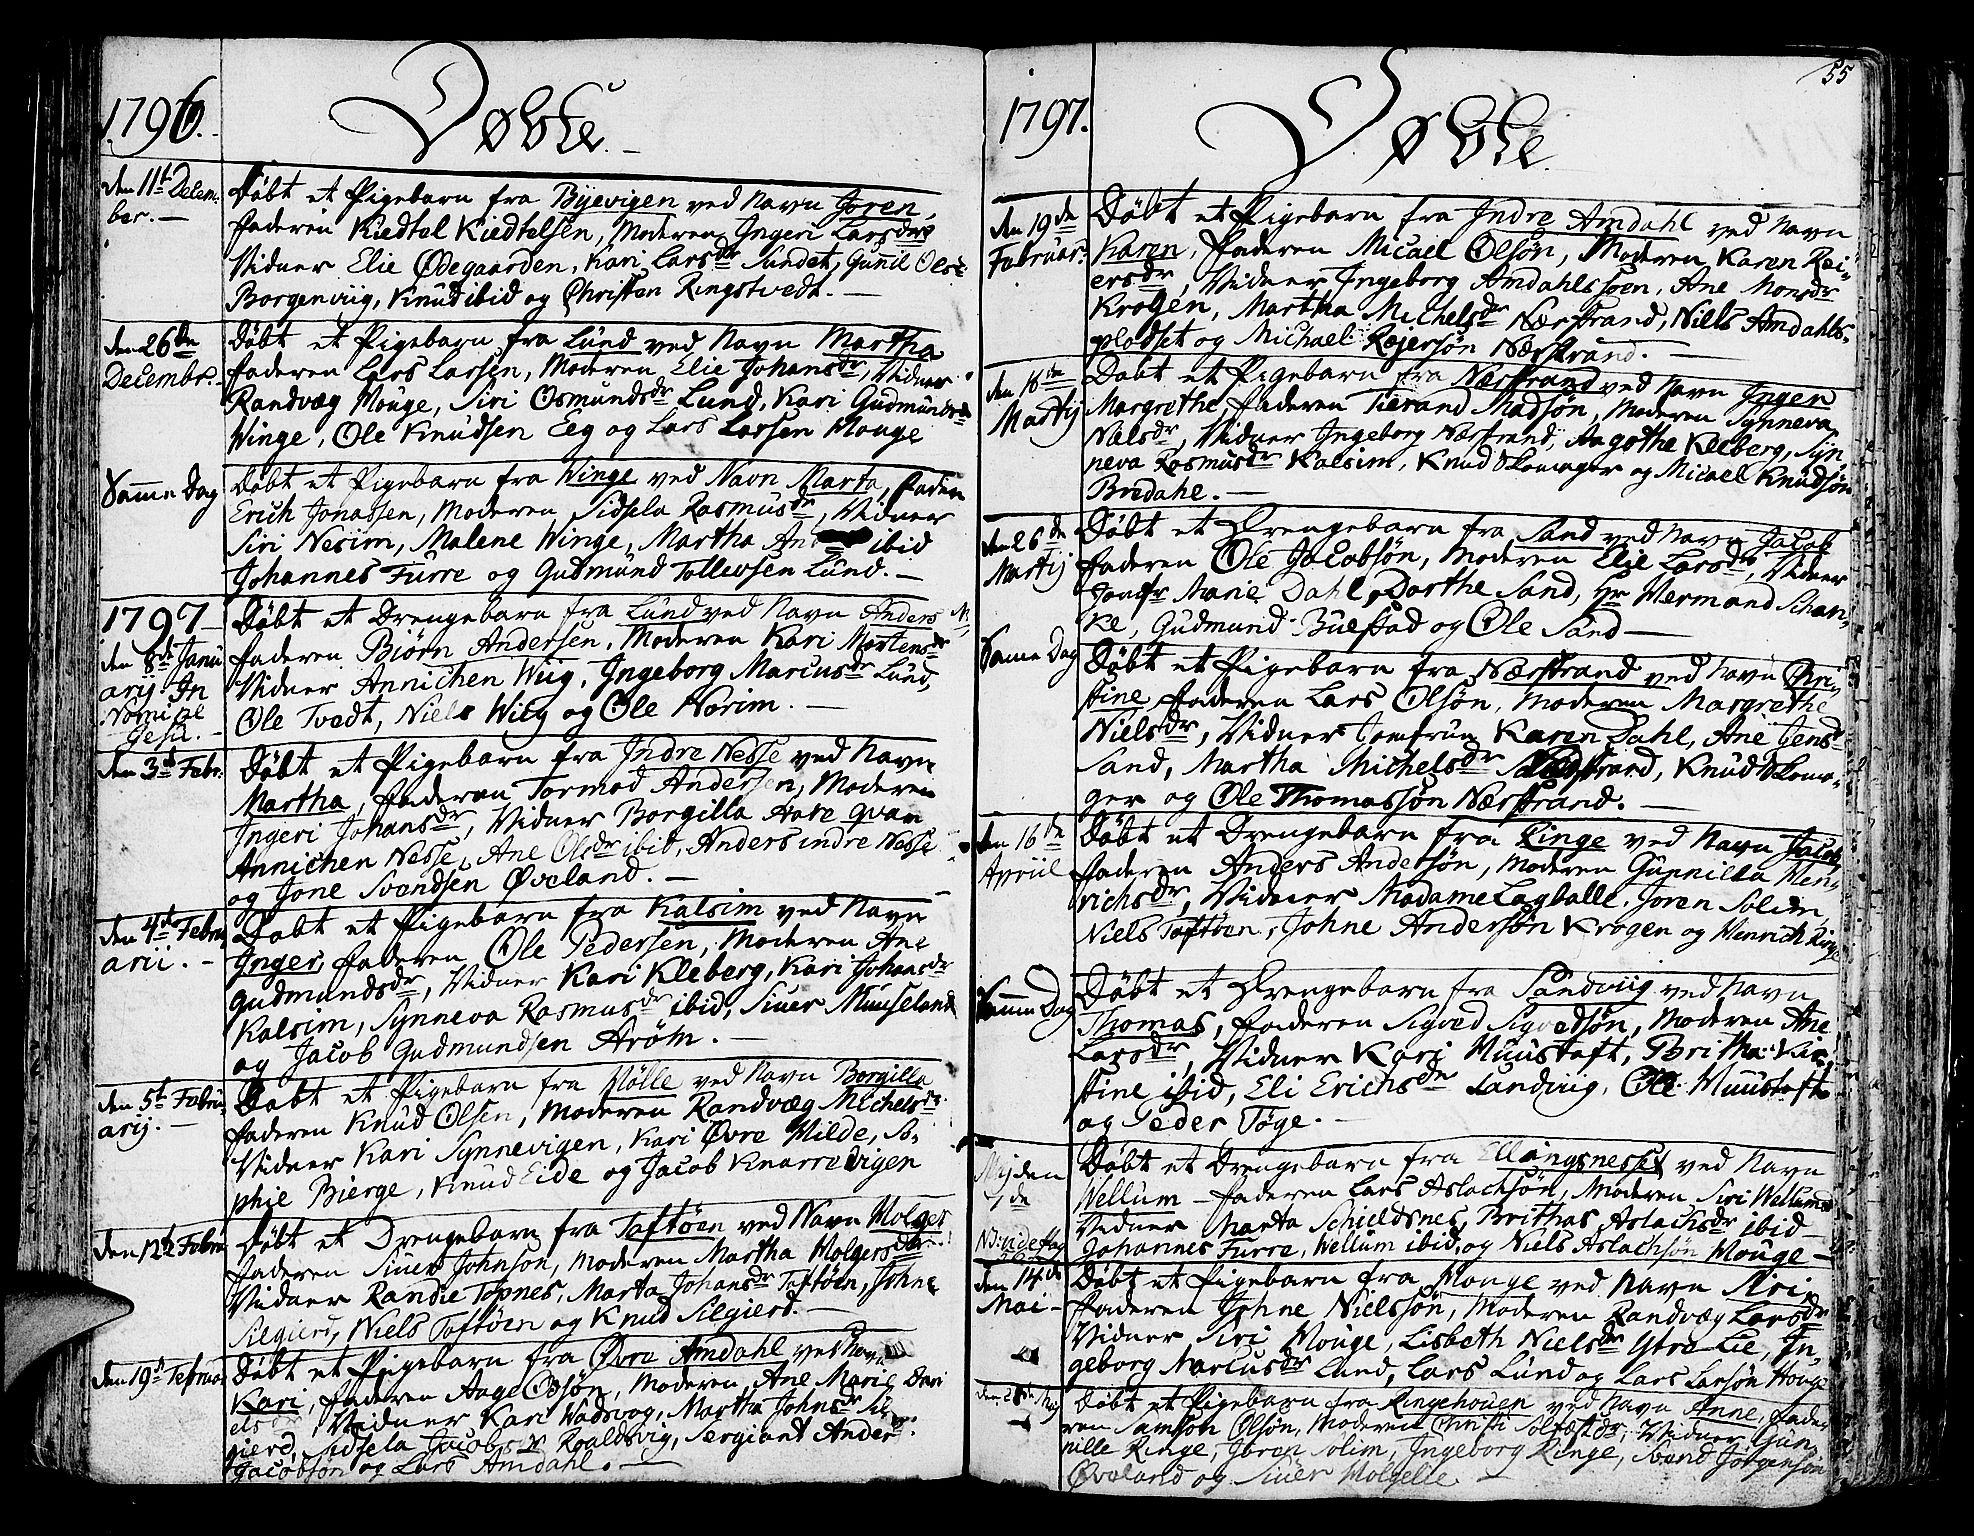 1796.
Døbte.
den 11te Decem-
ber.
Døbt et Pigebarn fra Byevigen ved Navn Joren,
faderen Kiedtel Kiedtelsen, Moderen Ingeri Larsdr
Vidner Elie Ødegaarden, Kari Larsdr Sundet, Gunil Ols-
Borgenviig, Knud ibid og Christen Ringstvedt.
den 26de
Decembr.
Døbt et Pigebarn fra Lund ved Navn Martha
faderen Lars Larsen, Moderen Elie Johansdr, Vidner
Randvæg Houge, Siri Osmundsdr Lund, Kari Gudmundsdr
Winge, Ole Knudsen Eeg og Lars Larsen Houge
Samme Dag
Døbt et Pigebarn fra Winge ved Navn Marta, faderen
Erich Jonassen, Moderen Sidsela Rasmusdr, Vidner
Siri Nesim, Malene Winge, Martha ibid
Johannes Furre og Gudmund Tollevsen Lund.
1797
den 8de Janu
arij In
Nomine
Jesu.
Døbt et Drengebarn fra Lund ved Navn Anders M.
faderen Biørn Andersen, Moderen Kari Mortensdr
Vidner Annichen Wiig, Ingeborg Marcusdr Lund,
Ole Tvedt, Niels Wiig og Ole Norim.
den 3die Febr.
Døbt et Pigebarn fra Indre Nesse ved Navn
Martha, faderen Tormod Andersen, Moderen
Ingeri Johansdr, Vidner Borgilla Aare Qvan
Annichen Nesse, Ane Olsdr ibid, Anders indre Nesse
og Jone Svendsen Øveland.
den 4de Febru
arii.
Døbt et Pigebarn fra Kalsim ved Navn
Inger, faderen Ole Pedersen, Moderen Ane
Gudmundsdr, Vidner Kari Kleberg, Kari Johansdr
Kalsim, Synneva Rasmusdr ibid, Siuer Muuseland
og Jacob Gudmundsen Arøm.
den 5te Febru
arij.
Døbt et Pigebarn fra Hølle ved Navn Borgilla
faderen Knud Olsen, Moderen Randvæg Michelsdr
Vidner Kari Synnevigen, Kari Øvre Hilde, So-
phie Bierge, Knud Eide og Jacob Knarrevigen
den 12te Febru
Døbt et Drengebarn fra Toftøen ved Navn Holger
faderen Siuer Johnson, Moderen Martha Holgersdr
Vidner Randie Topnes, Marta Johansdr Toftøen, Johne
Selgierd, Niels Toftøen og Knud Selgierd.
den 19de Februar
Døbt et Pigebarn fra Øvre Amdahl ved Navn
Kari, faderen Aage Olsøn, Moderen Ane Marie Dani
elsdr, Vidner Kari Wadsvog, Martha Johnsdr Sel
gierd, Sidsela Jacobsdr Roaldsvig, Sergiant Ander
Jacobsøn og Lars Amdahl.
55
1797.
Døbte
den 19de
Februar.
Døbt et Pigebarn fra Indre Amdahl ved Navn
Karen, faderen Micael Olsøn, Moderen Karen Rei-
ersdr, Vidner Ingeborg Amdahlssøen, Ane Monsdr
Krogen, Martha Michelsdr Nærstrand, Niels Amdahls-
pladset og Michael Rejersøn Nærstrand.
Martij
Døbt et Pigebarn fra Nærstrand ved Navn Inger
Margrethe, faderen Tierand Madsøn, Moderen Synneva
Nelsdr, Vidner Ingeborg Nærstrand, Aagothe Kleberg, Syn
neva Rasmusdr Kalsim, Knud Skomager og Micael Knudsøn
Bredahl.
den 26de
Martij
Døbt et Drengebarn fra Sand ved Navn Jacob
faderen Ole Jacobsøn, Moderen Elie Larsdr, Vidner
Jomfr Marie Dahl, Dorthe Sand, Hr Hermand Schan-
ke, Gudmund Buestad og Ole Sand
Samme Dag
Døbt et Pigebarn fra Nærstrand ved Navn Chri-
stine, faderen Lars Olsøn, Moderen Margrethe
Nielsdr, Vidner Jomfrue Karen Dahl, Ane Jensdr
Sand, Martha Michelsdr Nærstrand, Knud Skoma-
ger og Ole Thomassøn Nærstrand.
den 16de
Apriil
Døbt et Drengebarn fra Ringe ved Navn Jacob,
faderen Anders Andersøn, Moderen Gunnilla Hen-
richsdr, Vidner Madame Lagballe, Joren Solim,
Niels Toftøen, Johne Andersøn Krogen og Henrich Ringe
Samme Dag
Døbt et Drengebarn fra Sandviig ved Navn
Thomas, faderen Sigved Sigvedsøn, Moderen Ane
Larsdr, Vidner Kari Muustoft, Britha Kir-
stine ibid, Eli Erichsdr Sandviig, Ole Muustoft
og Peder Tøge.
Maj den
7de
Døbt et Drengebarn fra Ellingsneset ved Navn
Wellum faderen Lars Aslachsøn, Moderen Siri Wellumsdr
Vidner Marta Schieldsnes, Brithas Aslachsdr ibid
Johannes Furre, Wellum ibid, og Niels Aslachsøn Houge
den 14de
Mai
Døbt et Pigebarn fra Houge ved Navn Siri
faderen Johne Nielssøn, Moderen Randvæg Larsdr
Vidner Siri Houge, Lisbeth Nielsdr Ytre Lie, In-
geborg Marcusdr Lund, Lars Lund og Lars Larsøn Houge
den 28de Maj
Døbt et Pigebarn fra Ringehouen ved Navn Anne, fade
ren Samson Olsøn, Moderen Christi Solfestdr, Vidner Gun-
nille Ringe, Joren Solim, Ingeborg Ringe, Svend Jørgensøn
Øveland og Siuer Molgelie.